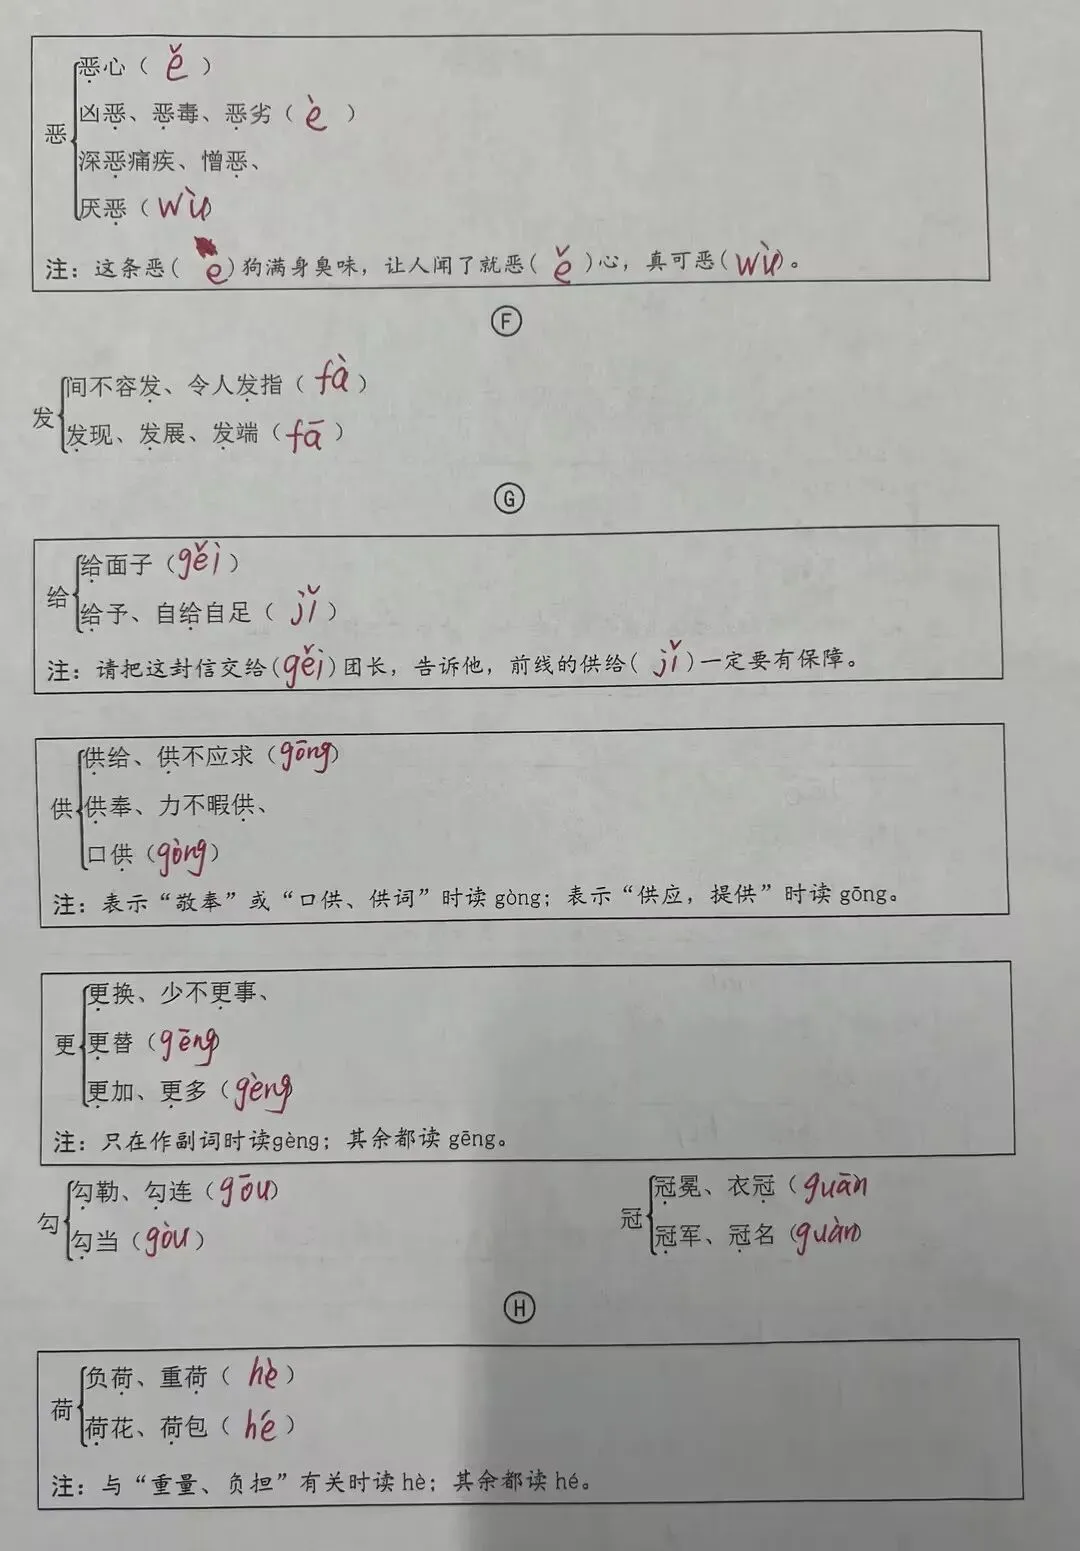 恶心（ ě ）
凶恶、恶毒、恶劣（ è ）
恶
深恶痛疾、憎恶、
厌恶（ wù ）
注：这条恶( e )狗满身臭味，让人闻了就恶( ě )心，真可恶( wù )。
F
间不容发、令人发指（ fà ）
发
发现、发展、发端（ fā ）
G
给面子（ gěi ）
给
给予、自给自足（ jǐ ）
注：请把这封信交给( gěi )团长，告诉他，前线的供给( jǐ )一定要有保障。
供给、供不应求（ gōng ）
供
供奉、力不暇供、
口供（ gòng ）
注：表示“敬奉”或“口供、供词”时读 gòng；表示“供应，提供”时读 gōng。
更换、少不更事、
更
更替（ gēng
更加、更多（ gèng ）
注：只在作副词时读gèng；其余都读 gēng。
勾勒、勾连（ gōu ）
勾
勾当（ gòu ）
冠冕、衣冠（ guān
冠
冠军、冠名（ guàn ）
H
负荷、重荷（ hè ）
荷
荷花、荷包（ hé ）
注：与“重量、负担”有关时读 hè；其余都读 hé。